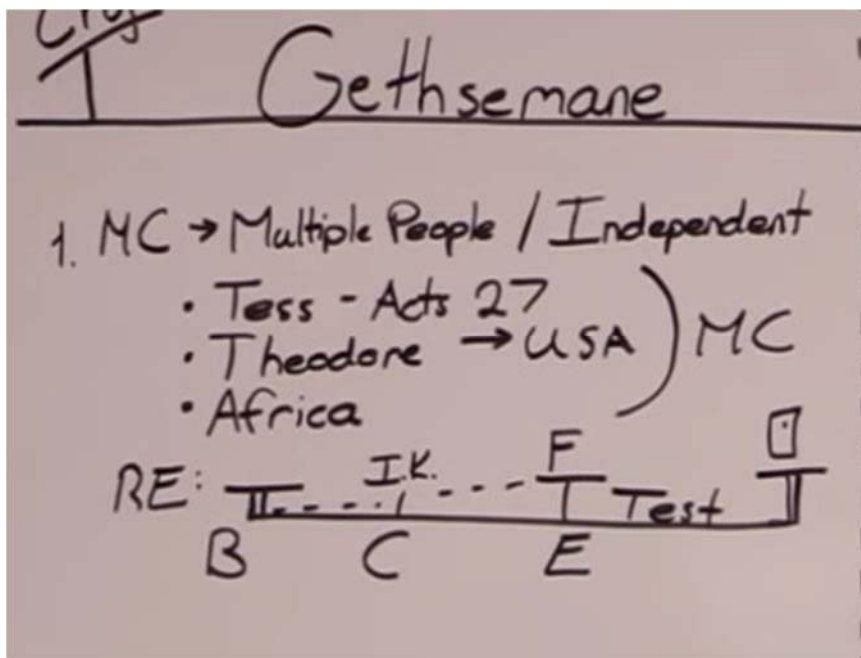 Gethsemane
1. MC → Multiple People / Independent
• Tess - Acts 27
• Theodore → USA
• Africa
MC
RE: I.K. F Test
B C E